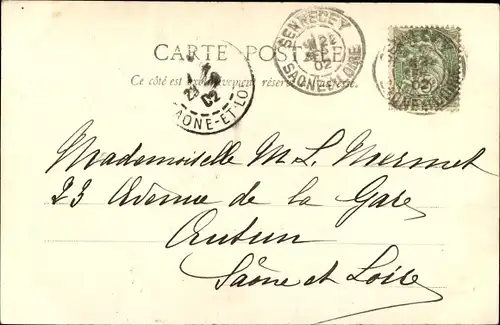 CARTE POSTALE
Ce côté est exclusivement réservé à l'adresse.
SENNECEY
SAONE-ET-LOIRE
02
SAONE-ET-LOIRE
02
Mademoiselle M. L. Mermet
23 Avenue de la Gare
Autun
Saône et Loire